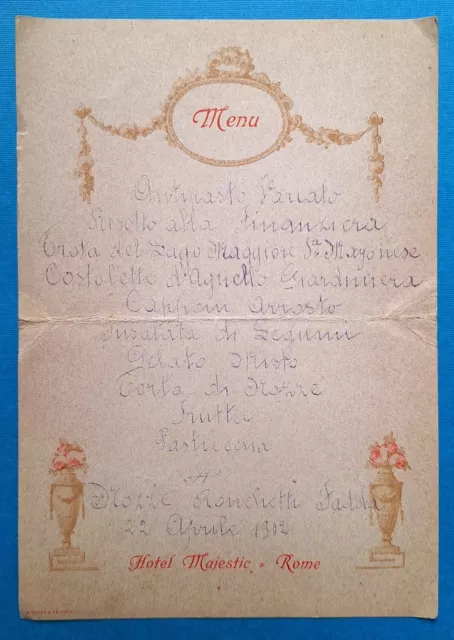 Menu
Antipasto Variato
Risotto alla Finanziera
Trota del Lago Maggiore Sa. Mayonese
Costolette d'Agnello Giardiniera
Capponi arrosto
Insalata di Legumi
Gelato Misto
Torta di Nozze
Frutta
Pasticceria
Nozze Ronchetti Fadda
22 Aprile 1912
Hotel Majestic Rome